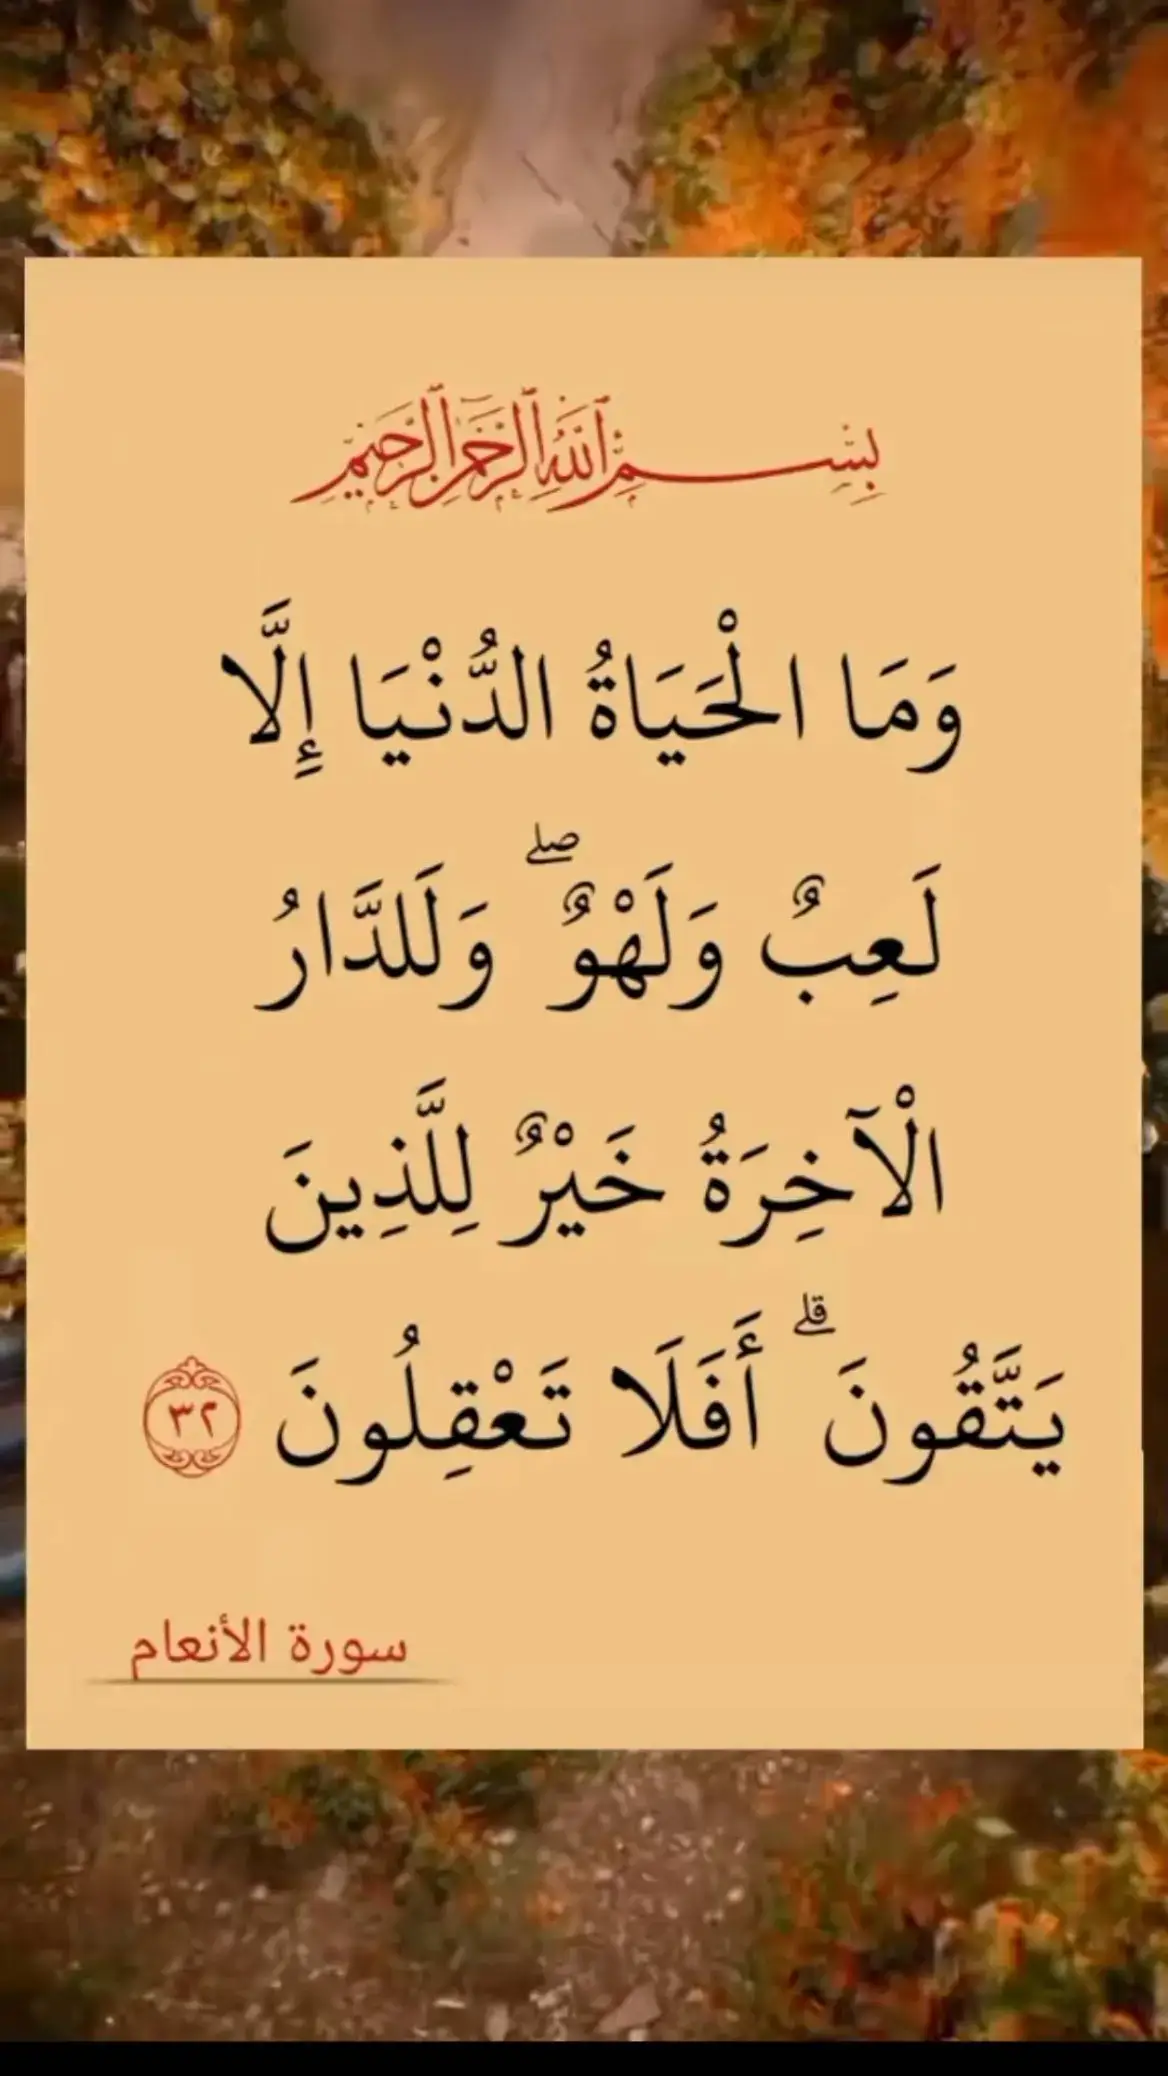 بِسْمِ ٱللَّهِ ٱلرَّحْمَٰنِ ٱلرَّحِيمِ
وَمَا الْحَيَاةُ الدُّنْيَا إِلَّا
لَعِبٌ وَلَهْوٌ ۖ وَلَلدَّارُ
الْآخِرَةُ خَيْرٌ لِلَّذِينَ
يَتَّقُونَ ۗ أَفَلَا تَعْقِلُونَ ٣٢
سورة الأنعام